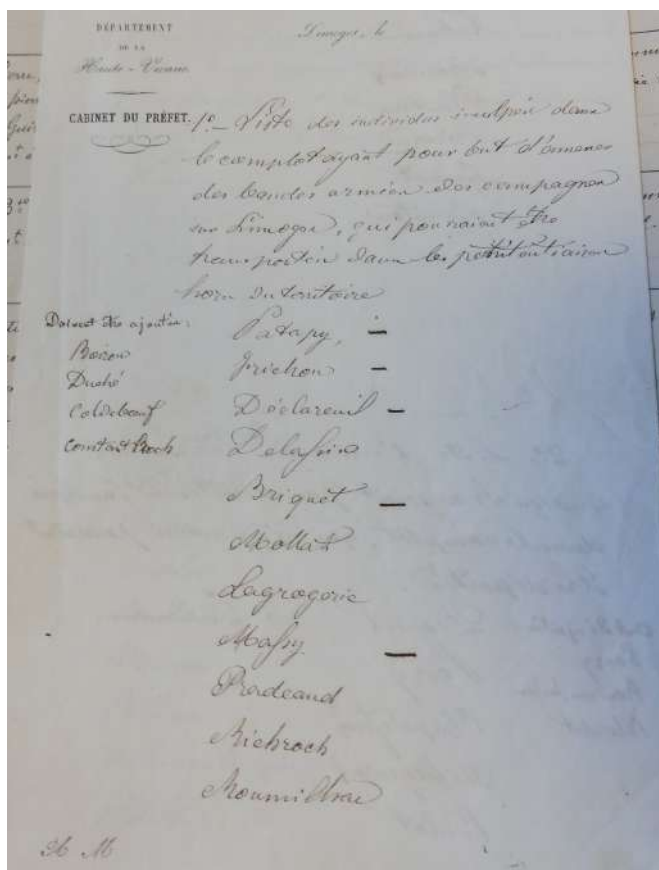 DÉPARTEMENT
DE LA
Haute-Vienne
Limoges, le
CABINET DU PRÉFET.
1o- Liste des individus inculpés dans
le complot ayant pour but d'amener
des bandes armées des campagnes
sur Limoges, qui pourraient être
transportés dans les pénitentiaires
hors du territoire
Doivent être ajoutés:
Boiron
Duché
Coldeboeuf
Constant Roch
Patapy,
Frichon
Déclareuil
Delassis
Briquet
Mollat
Lagrogerie
Massy
Pradeaud
Richroch